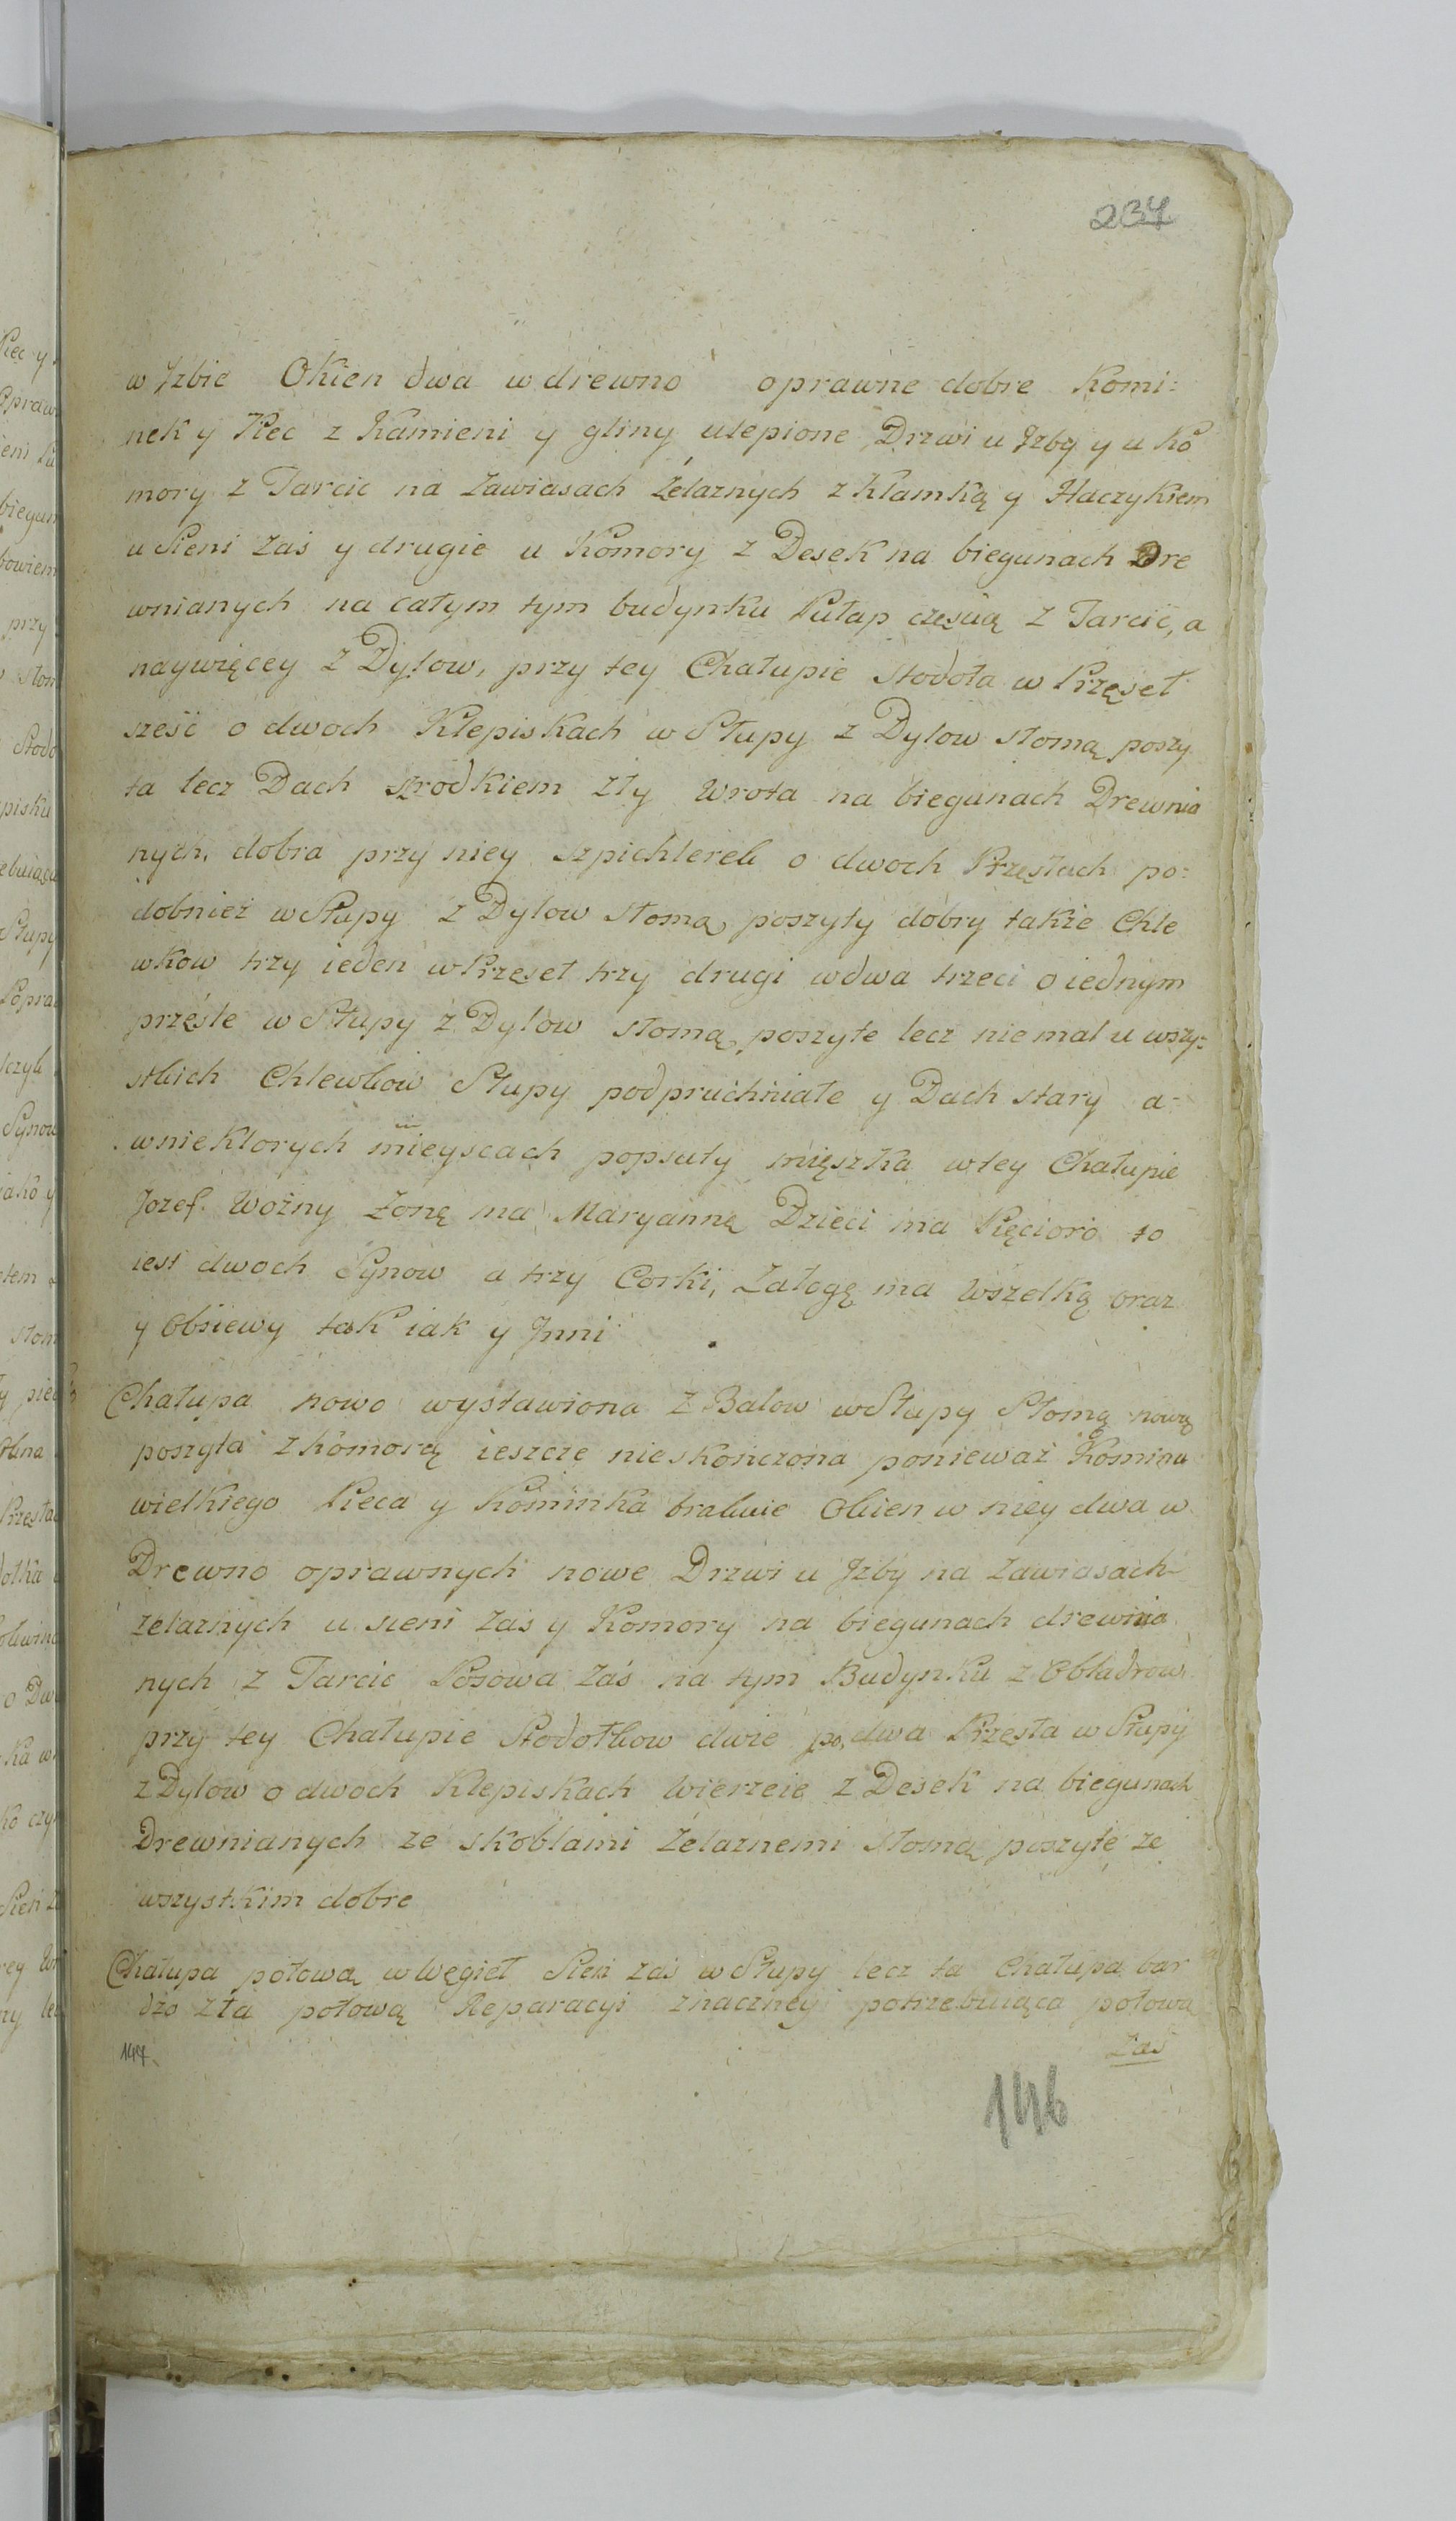 237
w Jzbie Okien dwa w drewno oprawne dobre Komi:
nek y Piec z Kamieni y gliny ulepione Drzwi u Jzby y u Ko
mory z Tarcic na Zawiasach Żelaznych z Klamką y Haczykiem
u Sieni Zaś y drugie u Komory z Desek na biegunach Dre
wnianych na całym tym budynku Pułap częścią z Tarcic, a
naywięcey z Dylow, przy tey Chałupie Stodoła w Przęseł
sześć o dwoch Klepiskach w Słupy z Dylow słomą poszy
ta lecz Dach srodkiem zły Wrota na biegunach Drewnia
nych, dobra przy niey szpichlerek o dwoch Przęsłach po:
dobnież w Słupy z Dylow słomą poszyty dobry także Chle
wkow trzy ieden w Przęseł trzy drugi w dwa trzeci o iednym
przęśle w Słupy z Dylow słomą poszyte lecz niemal u wszy:
stkich Chlewkow Słupy podpruchniałe y Dach stary a
w niektorych mieyscach popsuty mięszka w tey Chałupie
Jozef Woźny Żonę ma Maryannę Dzieci ma Pięcioro to
iest dwoch Synow a trzy Corki, Załogę ma Wszelką oraz
y Obsiewy tak iak y Jnni
Chałupa nowo wystawiona z Balow w Słupy Słomą nową
poszyta z Komorą ieszcze nieskończona ponieważ Komina
wielkiego Pieca y Kominka brakuie Okien w niey dwa w
Drewno oprawnych nowe Drzwi u Jzby na Zawiasach
żelaznych u sieni zas y Komory na biegunach drewnia
nych z Tarcic Posowa zaś na tym Budynku z Okładrow
przy tey Chałupie Stodołkow dwie po dwa Przęsła w Słupy
z Dylow o dwoch Klepiskach Wierzeie z Desek na biegunach
Drewnianych ze skoblami Żelaznemi słomą poszyte ze
wszystkim dobre
Chałupa połową w Węgieł Sień zaś w Słupy lecz ta Chałupa bar
dzo zła połową Reparacyi znaczney potrzebuiąca połowa
Zaś
147.
146